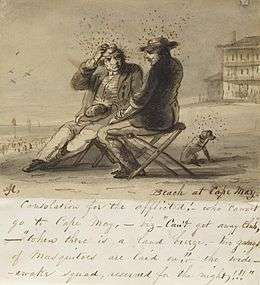 Beach at Cape May.
Consolation for the afflicted! who can't
go to Cape May, — by "Can't get away Club,
— "When there is a land breeze — his
of Musquitoes are laid on", the wide
awake squad, reserved for the night,!!!"